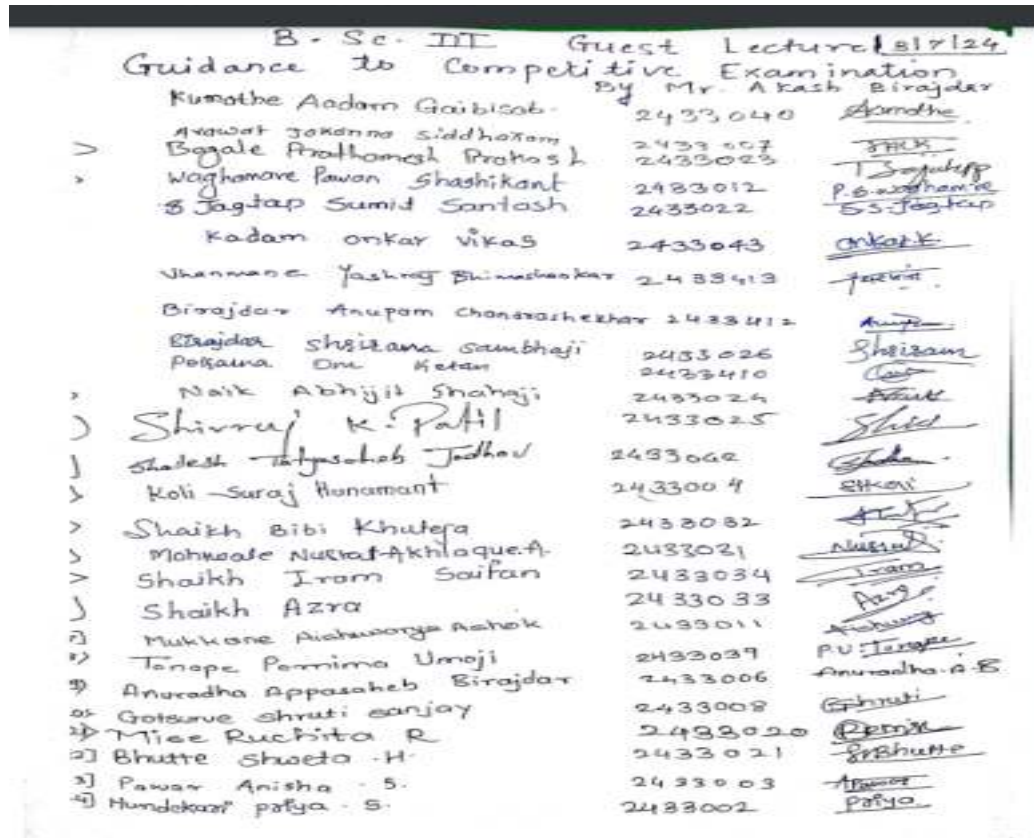 B. Sc. III Guest Lecture 8/7/24
Guidance to Competitive Examination
By Mr. Akash Birajdar
Kumathe Aadam Gaibisab. 2433040
siddharam 2433007
> Bagale Prathamesh Prakash 2433023
> Waghamare Pawan Shashikant 2433012 P.S. Waghamare
Jagtap Sumit Santosh 2433022 S.S. Jagtap
Kadam onkar vikas 2433043 onkar.k.
Vhanmane Yashraj Bhimashankar 2433413
Birajdar Anupam Chandrashekhar 2433412
Birajdar sambhaji 2433026 Shriram
Om Ketan 2433410
> Naik Abhijit Shahaji 2433024
) Shivraj K. Patil 2433025
) Jadhav
> Koli Suraj Hanamant 2433004 SHKoli
> Shaikh Bibi Khuteja 2433032
> Nusrat Akhlaque.A. 2433031 Nusrat
> Shaikh Iram Saifan 2433034 Iram
) Shaikh Azra 2433033 Azra
Mukkane Aishwarya Ashok 2433011
Tanape Umaji 2433039 P.U. Tanape
9) Anuradha Appasaheb Birajdar 2433006 Anuradha.A.B
shruti sanjay 2433008 Gshruti
Ruchita R 2433020
2] Bhutte Shweta .H. 2433021
3] Pawar Anisha . S. 2433003
4] Hundekari priya . S. 2433002 Priya